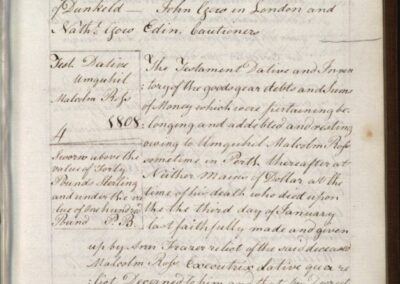 of Dunkeld — John Gow in London and
Nathl. Gow Edinr. Cautioners
Test. Dative
Umquhil
Malcolm Ross
1808.
4
Sworn above the
value of Forty
Pounds Sterling
and under the va
lue of One hundred
Pound P.B.
The Testament Dative and Inven
tory of the goods gear debts and Sums
of Money which were pertaining be
longing and addebted and resting
owing to Umquhil Malcolm Ross
sometime in Perth thereafter at
Neither Mains of Dollar at the
time of his death who died upon
the the third day of January
last faithfully made and given
up by Ann Frazer relict of the said deceased
Malcolm Ross Executrix dative qua re
lict Decerned to him and that by Decreet